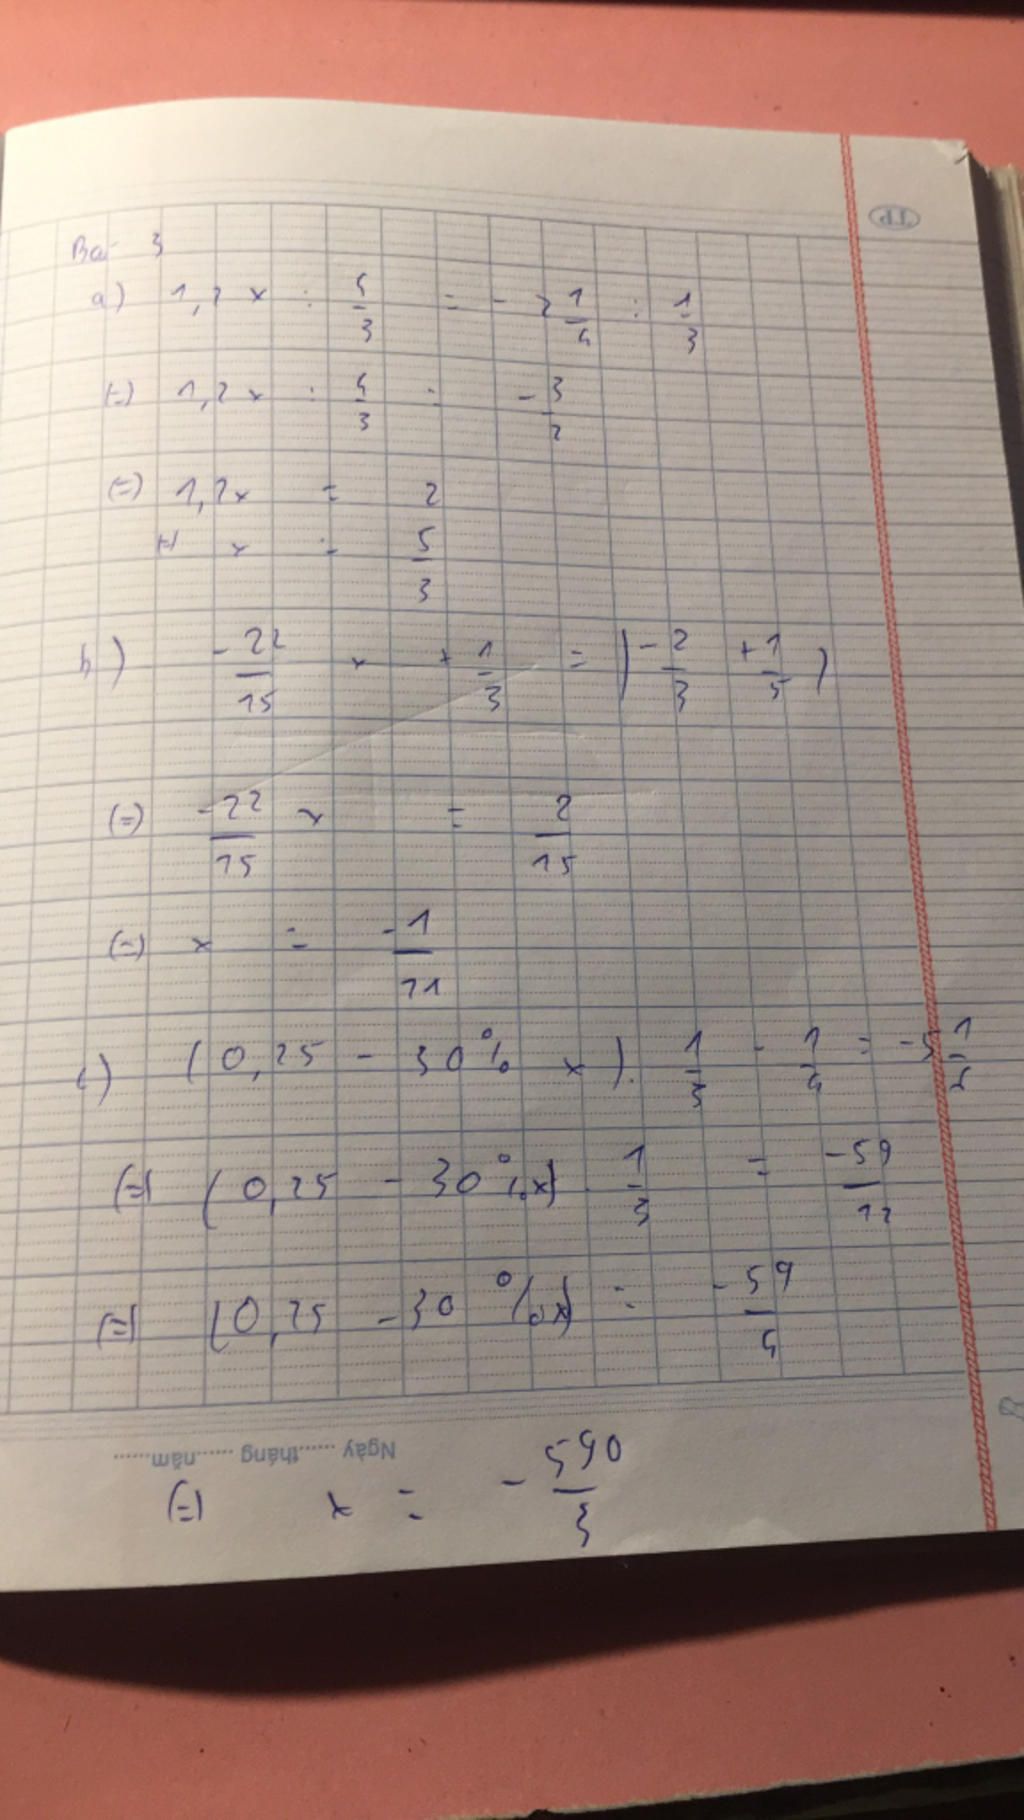 Bài 3
a) 1,2 x : 4/3 = - 2 1/4 : 1/3
(=) 1,2 x : 4/3 = - 3/2
(=) 1,2x = 2
(=) x = 5/3
b) -22/15 x + 1/3 = |-2/3 + 1/5|
(=) -22/15 x = 2/15
(=) x = -1/11
c) (0,25 - 30% x). 1/3 - 1/4 = -5 1/6
(=) (0,25 - 30%x) . 1/3 = -59/12
(=) (0,25 - 30%x) = -59/4
Ngày ...... tháng ...... năm ......
(=) x = -590/3